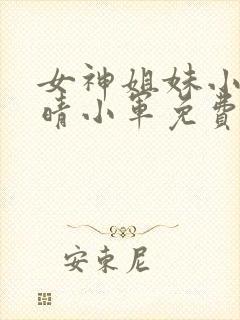 女神姐妹小
晴小军免費
安東尼